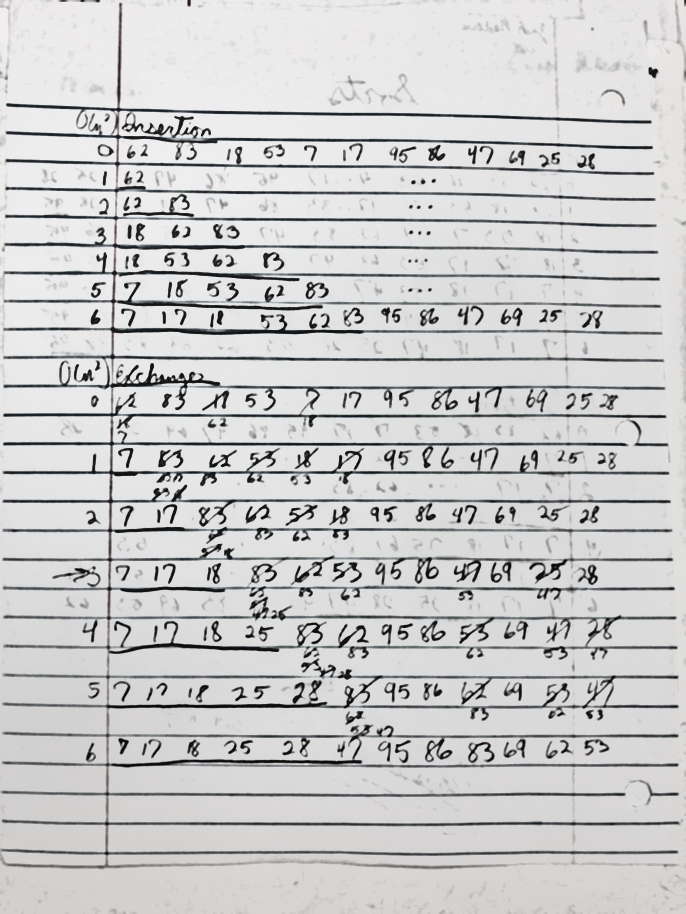 O(n²) Insertion
0 62 83 18 53 7 17 95 86 47 69 25 28
1 62 ...
2 62 83 ...
3 18 62 83 ...
4 18 53 62 83 ...
5 7 18 53 62 83 ...
6 7 17 18 53 62 83 95 86 47 69 25 28
O(n²) Exchange
0 62 83 18 53 7 17 95 86 47 69 25 28
18 62 18
7
1 7 83 62 53 18 17 95 86 47 69 25 28
83 62 53 18
2 7 17 83 62 53 18 95 86 47 69 25 28
62 83 62 53
53 18
→3 7 17 18 83 62 53 95 86 47 69 25 28
62 83 62 53 47
53
47 25
4 7 17 18 25 83 62 95 86 53 69 47 28
62 83 62 53 47
53 47 28
5 7 17 18 25 28 83 95 86 62 69 53 47
62 83 62 53
53 47
6 7 17 18 25 28 47 95 86 83 69 62 53